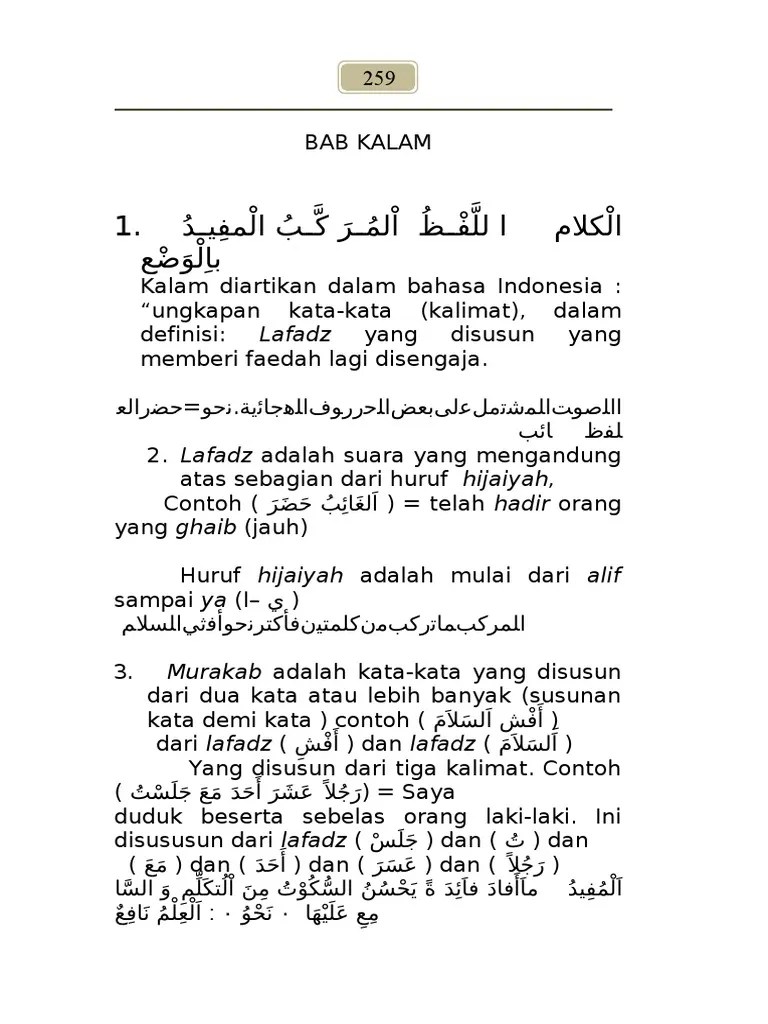 259
BAB KALAM
1. الْكلام ا للَّفْــظُ اْلمُــرَ كَّــبُ الْمفِيــدُ
بِاِلْوَضْع
Kalam diartikan dalam bahasa Indonesia :
“ungkapan kata-kata (kalimat), dalam
definisi: Lafadz yang disusun yang
memberi faedah lagi disengaja.
االصوت المشتمل على بعض الحرروف الهجائية. نحو=حضرالع
لفظ ائب
2. Lafadz adalah suara yang mengandung
atas sebagian dari huruf hijaiyah,
Contoh ( اَلغَائِبُ حَضَرَ ) = telah hadir orang
yang ghaib (jauh)
Huruf hijaiyah adalah mulai dari alif
sampai ya (ا– ي )
المركب ماتركب من كلمتين فأكترنحوأفثي السلام
3. Murakab adalah kata-kata yang disusun
dari dua kata atau lebih banyak (susunan
kata demi kata ) contoh ( أَفْشِ اَلسَلاَمَ )
dari lafadz ( أَفْشِ ) dan lafadz ( اَلسَلاَمَ )
Yang disusun dari tiga kalimat. Contoh
( رَجُلاً عَشَرَ أَحَدَ مَعَ جَلَسْتُ) = Saya
duduk beserta sebelas orang laki-laki. Ini
disususun dari lafadz ( جَلَسْ ) dan ( تُ ) dan
( مَعَ ) dan ( أَحَدَ ) dan ( عَسَرَ ) dan ( رَجُلاً )
اَلْمُفِيدُ ماَأَفادَ فاَئِدَ ةً يَحْسُنُ السُّكُوْتُ مِنَ اْلُتكَلِّمِ وَ السَّا
مِعِ عَلَيْهَا ٠ نَحْوُ ٠ : اَلْعِلْمُ نَافِعٌ